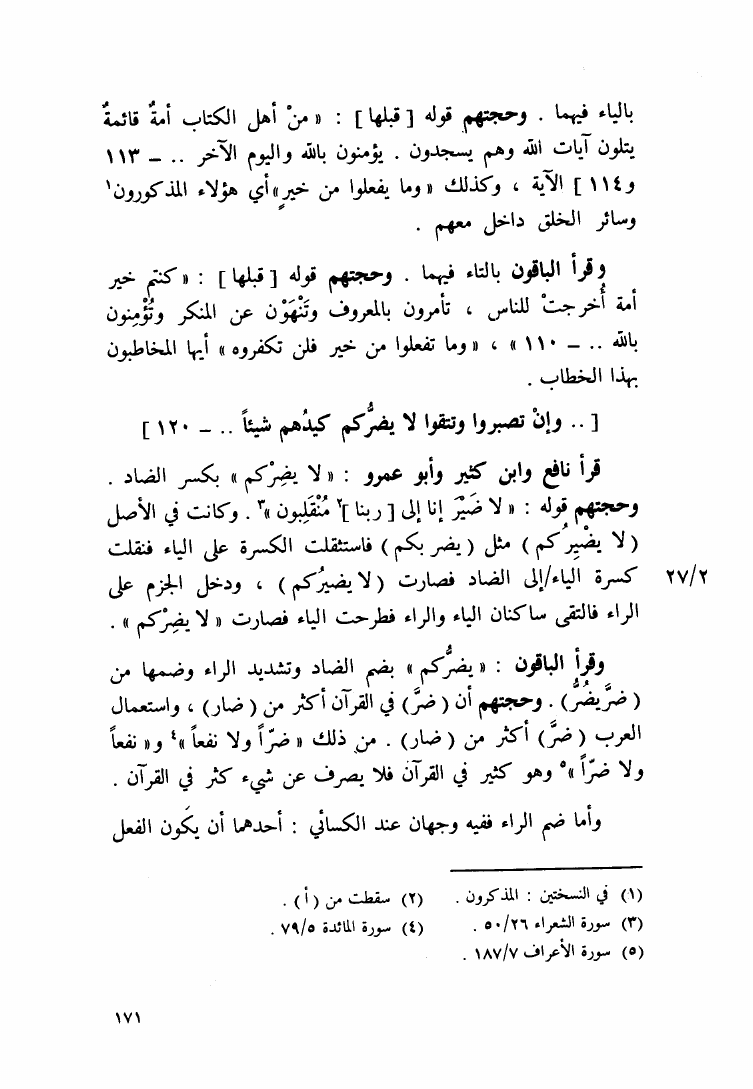 بالياء فيهما . وحجتهم قوله [ قبلها ] : « منْ أهل الكتاب أمةٌ قائمةٌ
يتلون آيات الله وهم يسجدون . يؤمنون بالله واليوم الآخر .. – ١١٣
و١١٤ ] الآية ، وكذلك « وما يفعلوا من خيرٍ » أي هؤلاء المذكورون١
وسائر الخلق داخل معهم .
وقرأ الباقون بالتاء فيهما . وحجتهم قوله [ قبلها ] : « كنتم خير
أمة أُخرجتْ للناس ، تأمرون بالمعروف وتَنْهَوْن عن المنكر وتُؤْمِنون
بالله .. – ١١٠ » ، « وما تفعلوا من خير فلن تكفروه » أيها المخاطبون
بهذا الخطاب .
[ .. وإنْ تصبروا وتتقوا لا يضرُّكم كيدُهم شيئاً .. – ١٢٠ ]
قرأ نافع وابن كثير وأبو عمرو : « لا يضِرْكم » بكسر الضاد .
وحجتهم قوله : « لا ضَيْرَ إنا إلى [ ربنا ]٢ مُنْقَلِبون »٣ . وكانت في الأصل
( لا يضْيِرُكم ) مثل ( يضربكم ) فاستثقلت الكسرة على الياء فنقلت
كسرة الياء/إلى الضاد فصارت ( لا يضيرُكم ) ، ودخل الجزم على ٢٧/٢
الراء فالتقى ساكنان الياء والراء فطرحت الياء فصارت « لا يضِرْكم » .
وقرأ الباقون : « يضرُّكم » بضم الضاد وتشديد الراء وضمها من
( ضرَّ يضُرُّ ) . وحجتهم أن ( ضرَّ ) في القرآن أكثر من ( ضار ) ، واستعمال
العرب ( ضرَّ ) أكثر من ( ضار ) . من ذلك « ضرّاً ولا نفعاً »٤ و« نفعاً
ولا ضرّاً »٥ وهو كثير في القرآن فلا يصرف عن شيء كثر في القرآن .
وأما ضم الراء ففيه وجهان عند الكسائي : أحدهما أن يكون الفعل
(١) في النسختين : المذكرون . (٢) سقطت من ( أ ) .
(٣) سورة الشعراء ٥٠/٢٦ . (٤) سورة المائدة ٧٩/٥ .
(٥) سورة الأعراف ١٨٧/٧ .
١٧١